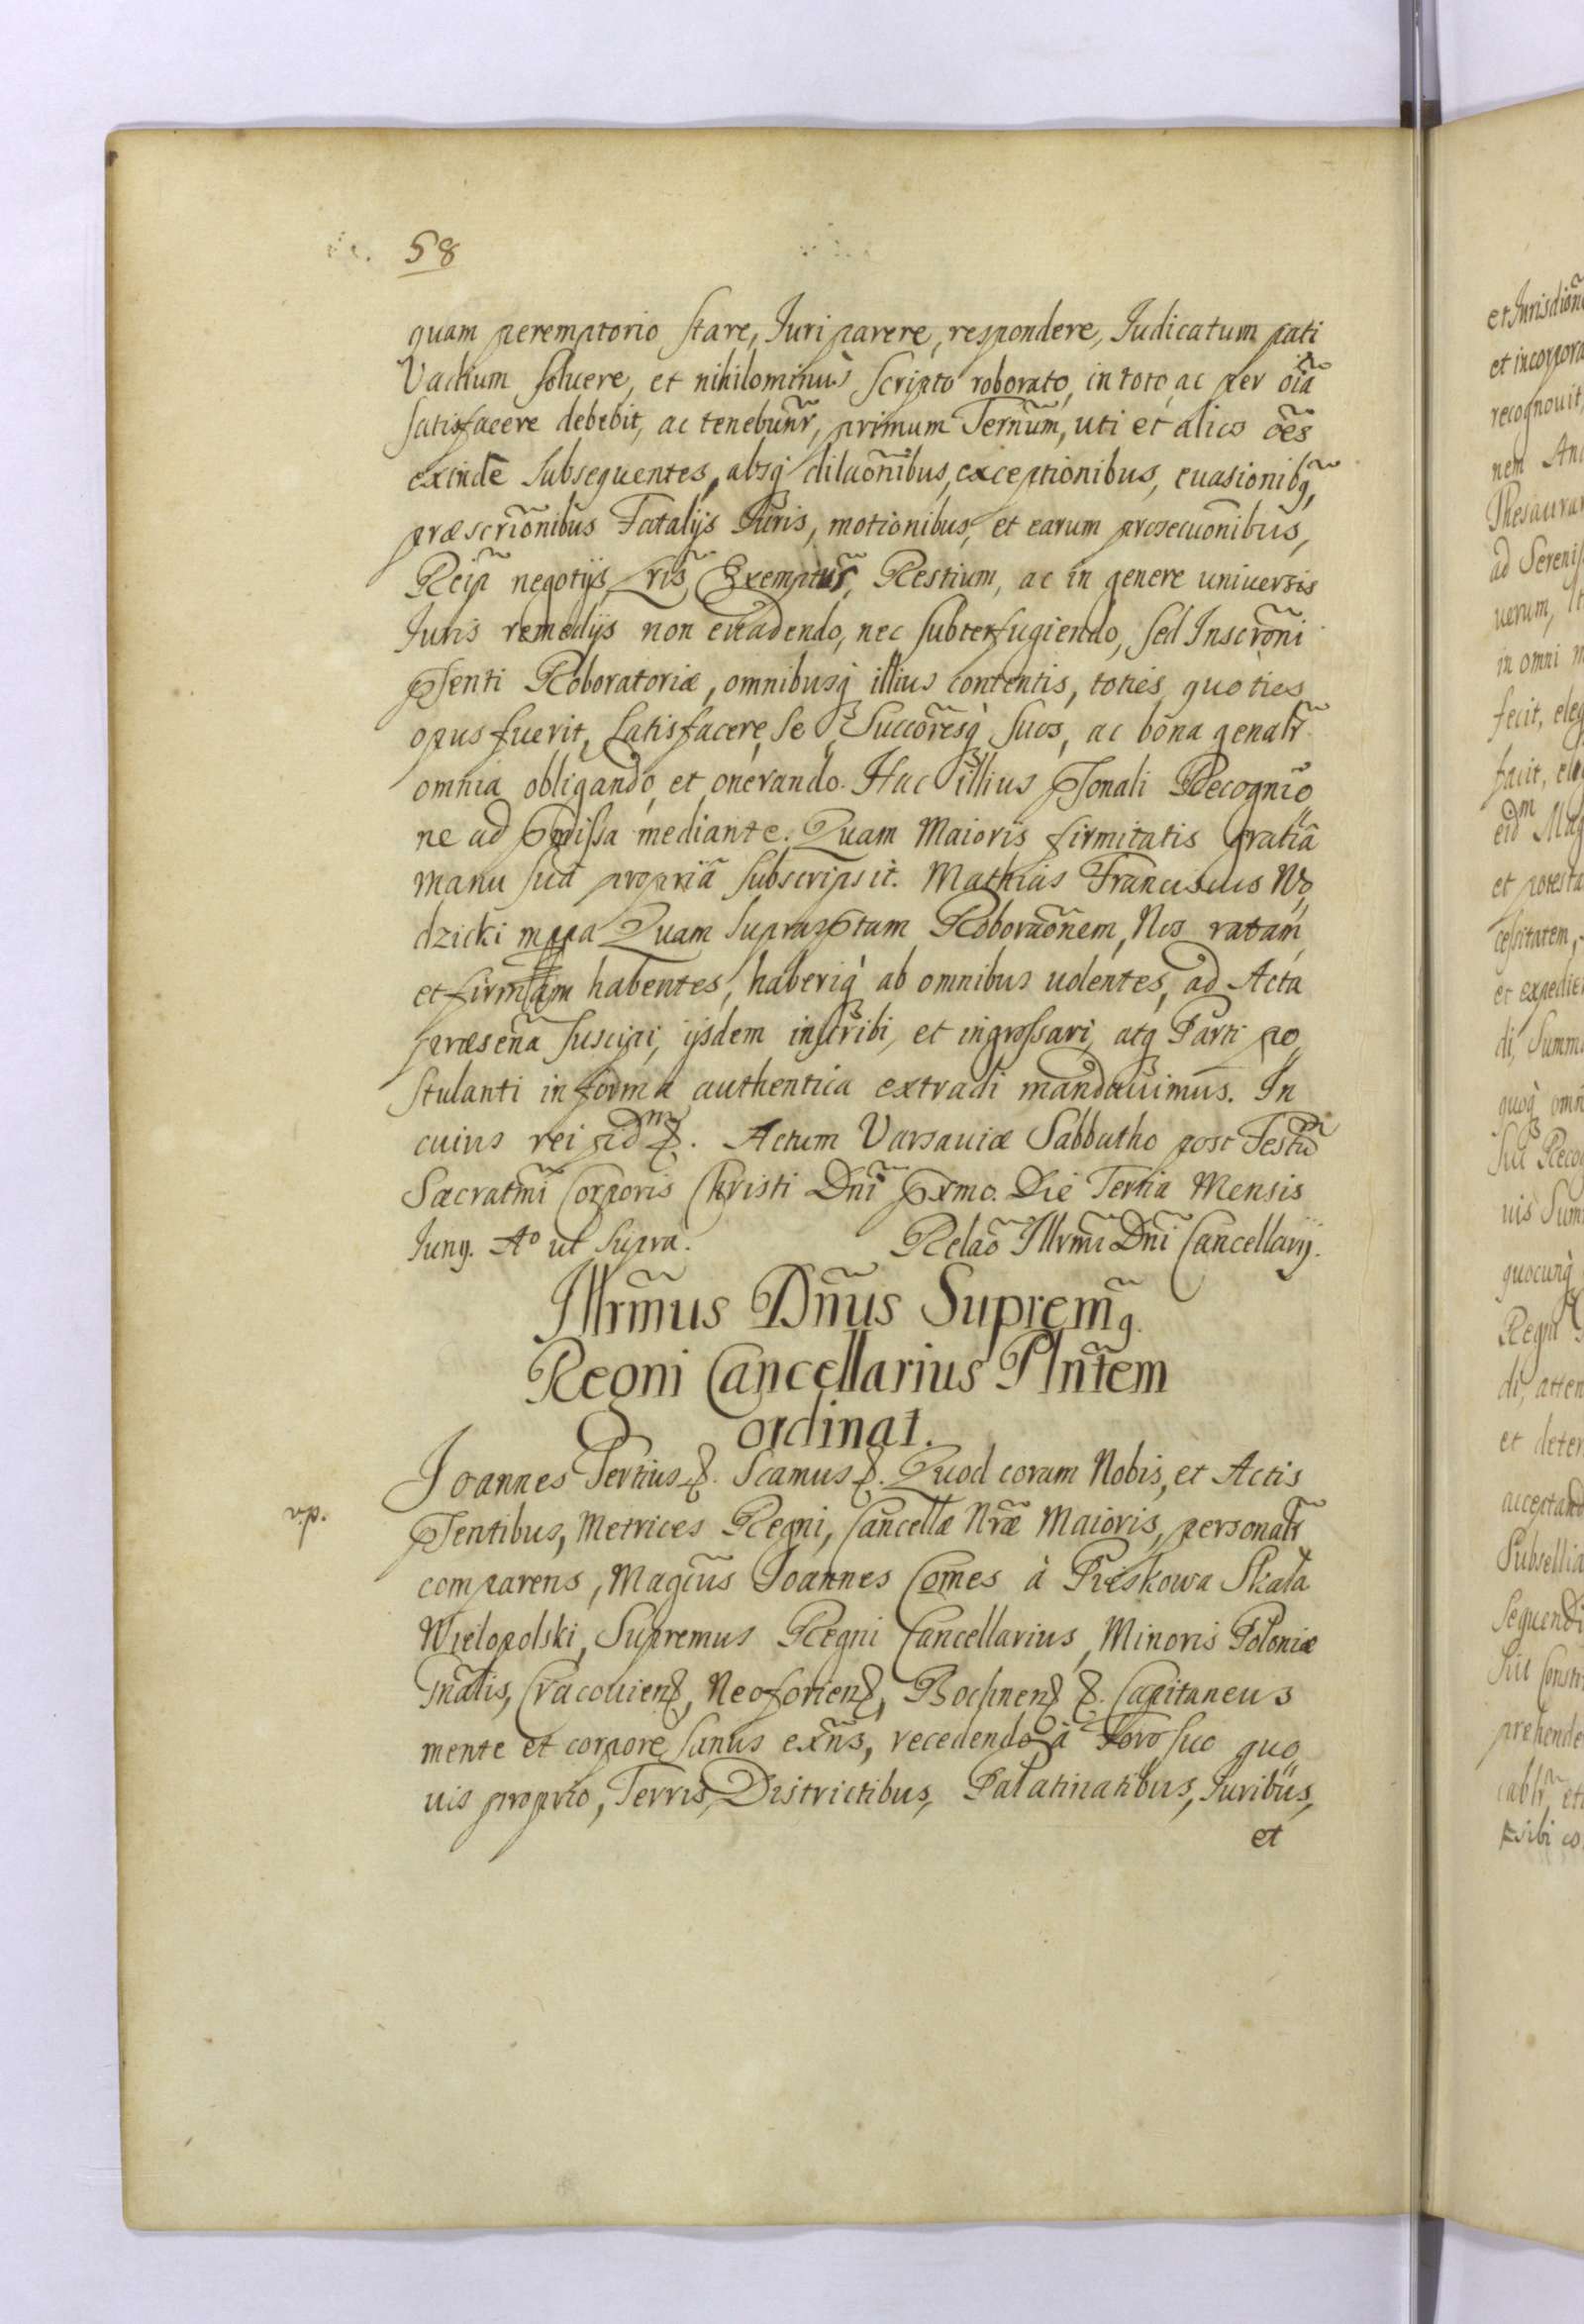 58
quam peremptorio stare, Iuri parere, respondere, Iudicatum pati
Vadium soluere, et nihilominus scripto roborato, in toto, ac per oĩa
satisfacere debebit, ac tenebunr̃, primum Ternũm, uti et alios oẽs
exinde subsequentes, absq dilaõnibus, exceptionibus, euasionibq,
præscriõnibus Fatalijs Iuris, motionibus, et earum prosecuõnibus,
Reip̃ negotijs, Lris̃ Exemptus̃, Restium, ac in genere universis
Iuris remedijs non euadendo, nec subterfugiendo, sed Inscrõni
Pñsenti Roboratoriæ, omnibusq illius contentis, toties quoties
opus fuerit, satisfacere, se Succõresq suos, ac bona genalr̃
omnia obligando, et onerando. Hac illius Psonali Recogniõ
ne ad Pmissa mediante. Quam Maioris firmitatis gratiâ
manu suâ propriâ subscripsit. Mathias Franciscus Wo
dzicki mppa Quam suprasPtam Roboraõnem, Nos ratam
et firmam habentes, haberiq ab omnibus uolentes, ad Acta
præseña suscipi, ijsdem inscribi, et ingrossari, atq Parti po
stulanti in forma authentica extradi mandauimus. In
cuius rei fidm &. Actum Varsauiæ Sabbatho post Festũ
Sacratm̃i Corporis Christi Dnĩ Pxmo. Die Tertia Mensis
Iunij. Ao ut supra. Relaõ Illrm̃i Dnĩ Cancellarij.
Illrm̃us Dñus Suprem̃q
Regni Cancellarius Plñtem
ordinat.
Ioannes Tertius &. Scamus &. Quod coram Nobis, et Actis
Psentibus, Metrices Regni, Cancellæ Nr̃æ Maioris, personalr̃
comparens, Magc̃us Ioannes Comes à Pieskowa Skała
Wielopolski, Supremus Regni Cancellarius, Minoris Poloniæ
Gñalis, Cracouien, Neoforien, Bochnen &. Capitaneus
mente et corpore sanus exñs, recedendo à Foro suo quo
uis proprio, Terris, Districtibus, Palatinatibus, Iuribus,
et